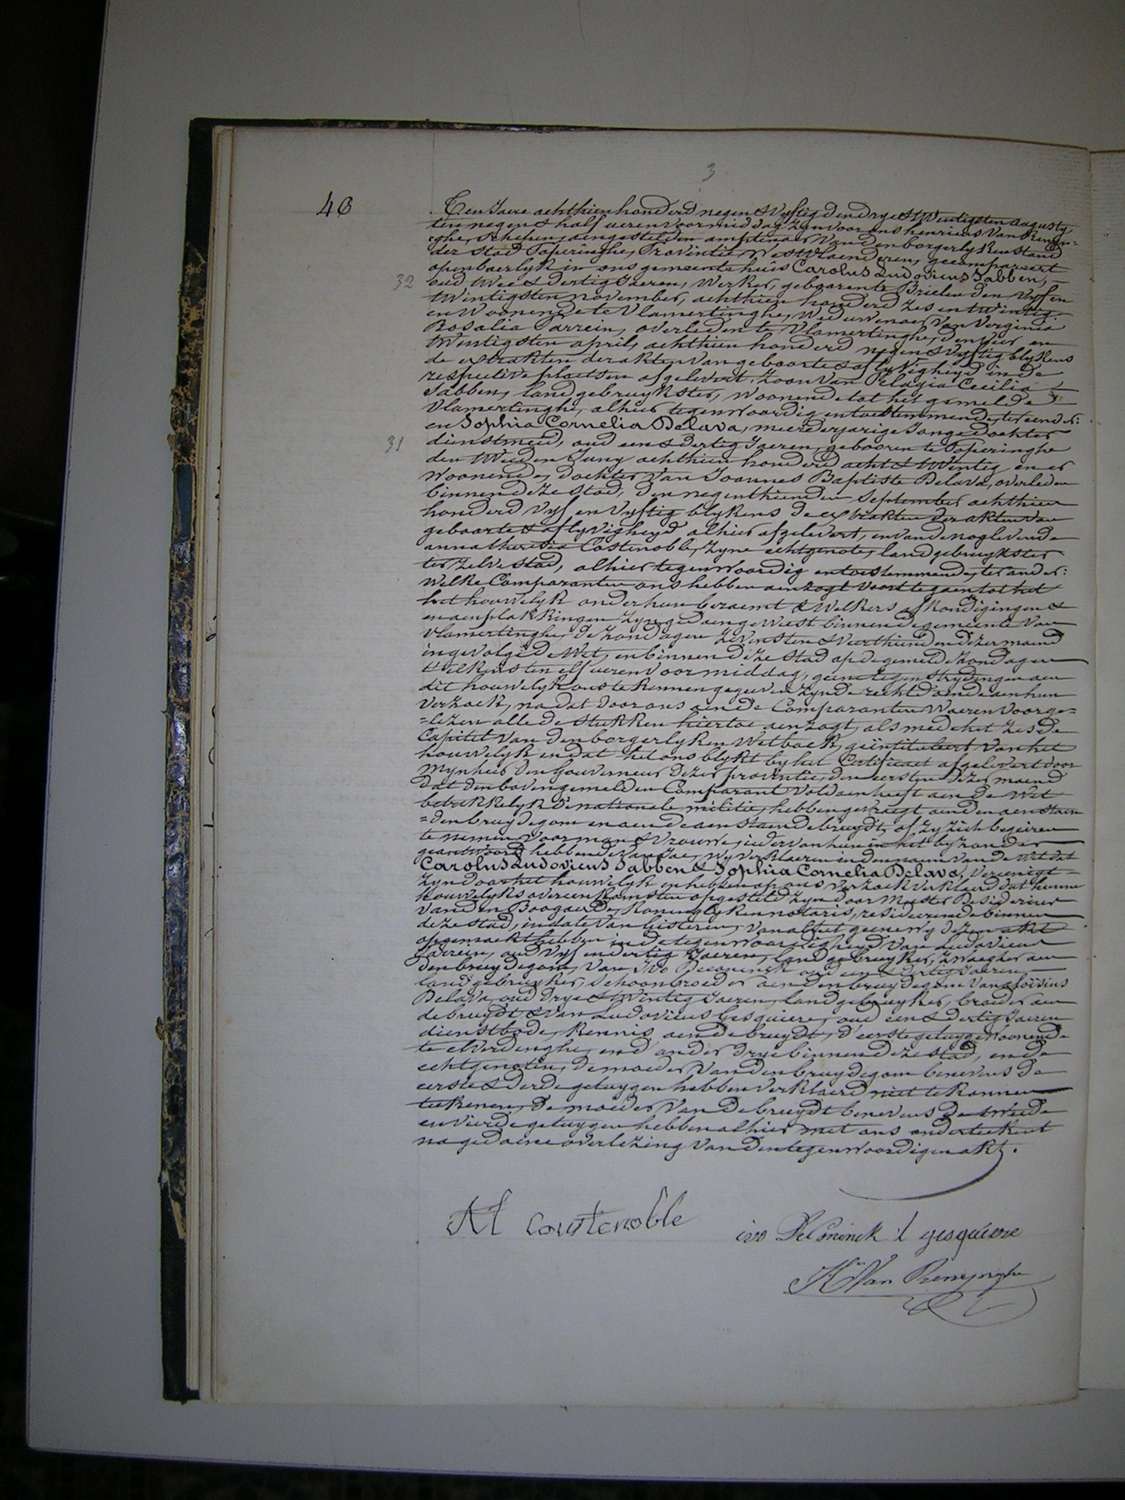 3
40
Ten Jaere achthien honderd negen & vyftig den drye & Twintigsten augusty
ten negen & half ueren voormiddag, zyn voor ons henricus Van Renyn-
ghe, schepen, aengestelden amptenaer Van den borgerlyken stand
der Stad Poperinghe, Provintie West Vlaenderen, gecompareert
openbaerlyk in ons gemeente huis Carolus Ludovicus Sabben,
32
oud twee & dertig Jaeren, Werker, geboren te Brielen den vyf en
Twintigsten november, achthien honderd zes en twintig
en Woonende te Vlamertinghe, Weduwenaer Van Virginia
Rosalia Parrein, overleden te Vlamertinghe, den vier en
Twintigsten april, achthien honderd negen & vyftig, blykens
de extrakten der akten van geboorte & aflyvigheyd in de
respective plaetsen afgelevert, Zoon Van Pelagia Cecilia
Sabben, landgebruykster, woonende tot het gemelde
Vlamertinghe, alhier tegenwoordig en toestemmende, ter eender:
en Sophia Cornelia Delava, meerderjarige Jonge Dochter
31
dienstmeid, oud een & dertig Jaeren, geboren te Poperinghe
den tweeden Juny achthien honderd acht & twintig en er
woonende, dochter Van Joannes Baptiste Delava, overleden
binnen deze stad, den negenthienden September achthien
honderd vyf en vyftig blykens de extrakten der akten van
geboorte & aflyvigheyd alhier afgelevert, en van de nog levende
anna theresia Costenoble, Zyne echtgenote, landgebruykster
ter zelve stad, alhier tegenwoordig en toestemmende, ter ander:
Welke Comparanten ons hebben aenzogt voorts te gaen tot het
het houwelyk onder hun beraemt & Welkers afkondigingen &
en aenplakkingen Zyn gedaen geweest binnen de gemeente Van
Vlamertinghe, de zondagen zevensten & veerthienden dezer maend
ingevolge de Wet, en binnen deze Stad op de gemelde zondagen
t'elkensten elf ueren voormiddag, geene tegenstrydingen aen
dit houwelyk ons te kennen gegeven zynde recht doende aen hun
verzoek, na dat door ons aen de Comparanten Waeren voorge-
-lezen alle de stukken hiertoe aenzogt, als mede het zesde
Capittel Van den borgerlyken Wetboek, geintituleert Van het
houwelyk en dat het ons blykt by het Certificaet afgelevert door
Mynheer den Gouverneur dezer provintie, den eersten dezer maend
dat den bovengemelden Comparant voldaen heeft aen de Wet
betrekkelyk de nationale militie, hebben gevraegt aen den aenstaen-
-den bruydegom en aen de aenstaende bruydt, of zy zich begeiren
te nemen voor man & vrouwe, ieder van hun in het byzonder
geantwoord hebbende Van Jae, Wy verklaeren in den naeme van de Wet dat
Carolus Ludovicus Sabben & Sophia Cornelia Delava, Vereenigt
Zyn door het houwelyk en hebben op ons verzoek verklaerd dat hunne
houwelyks overeenkomsten opgesteld zyn door Meester Desiderius
Vanden Boogaerde Koninglyken notaris, resideerende binnen
deze stad, in date van gisteren, Van al het geene wy dezen akt
opgemaekt hebben in de tegenwoordigheyd Van Ludovicus
Parrein, oud vyf en dertig Jaeren, landgebruyker, zwaegher aen
den bruydegom, Van Ivo Deconinck oud een & dertig Jaeren,
landgebruyker, schoonbroeder aen den bruydegom Van Aloisius
Delava, oud drye & twintig Jaeren, landgebruyker, broeder aen
de bruydt & Van Ludovicus Gesquiere, oud een & dertig Jaeren
dienstbode, kennis aen de bruydt, d'eerste getuyge woonende
te elverdinghe, en d'ander drye binnen deze stad, en de
echtgenoten, de moeder Van den bruydegom benevens de
eerste & derde getuygen hebben verklaerd niet te konnen
teekenen, de moeder Van de bruydt benevens de tweede
en vierde getuygen hebben alhier met ons onderteekent
na gedaene overlezing Van den tegenwoordigen akt.
At coustenoble
ivo DeConinck l gesquiere
H Van Renynghe